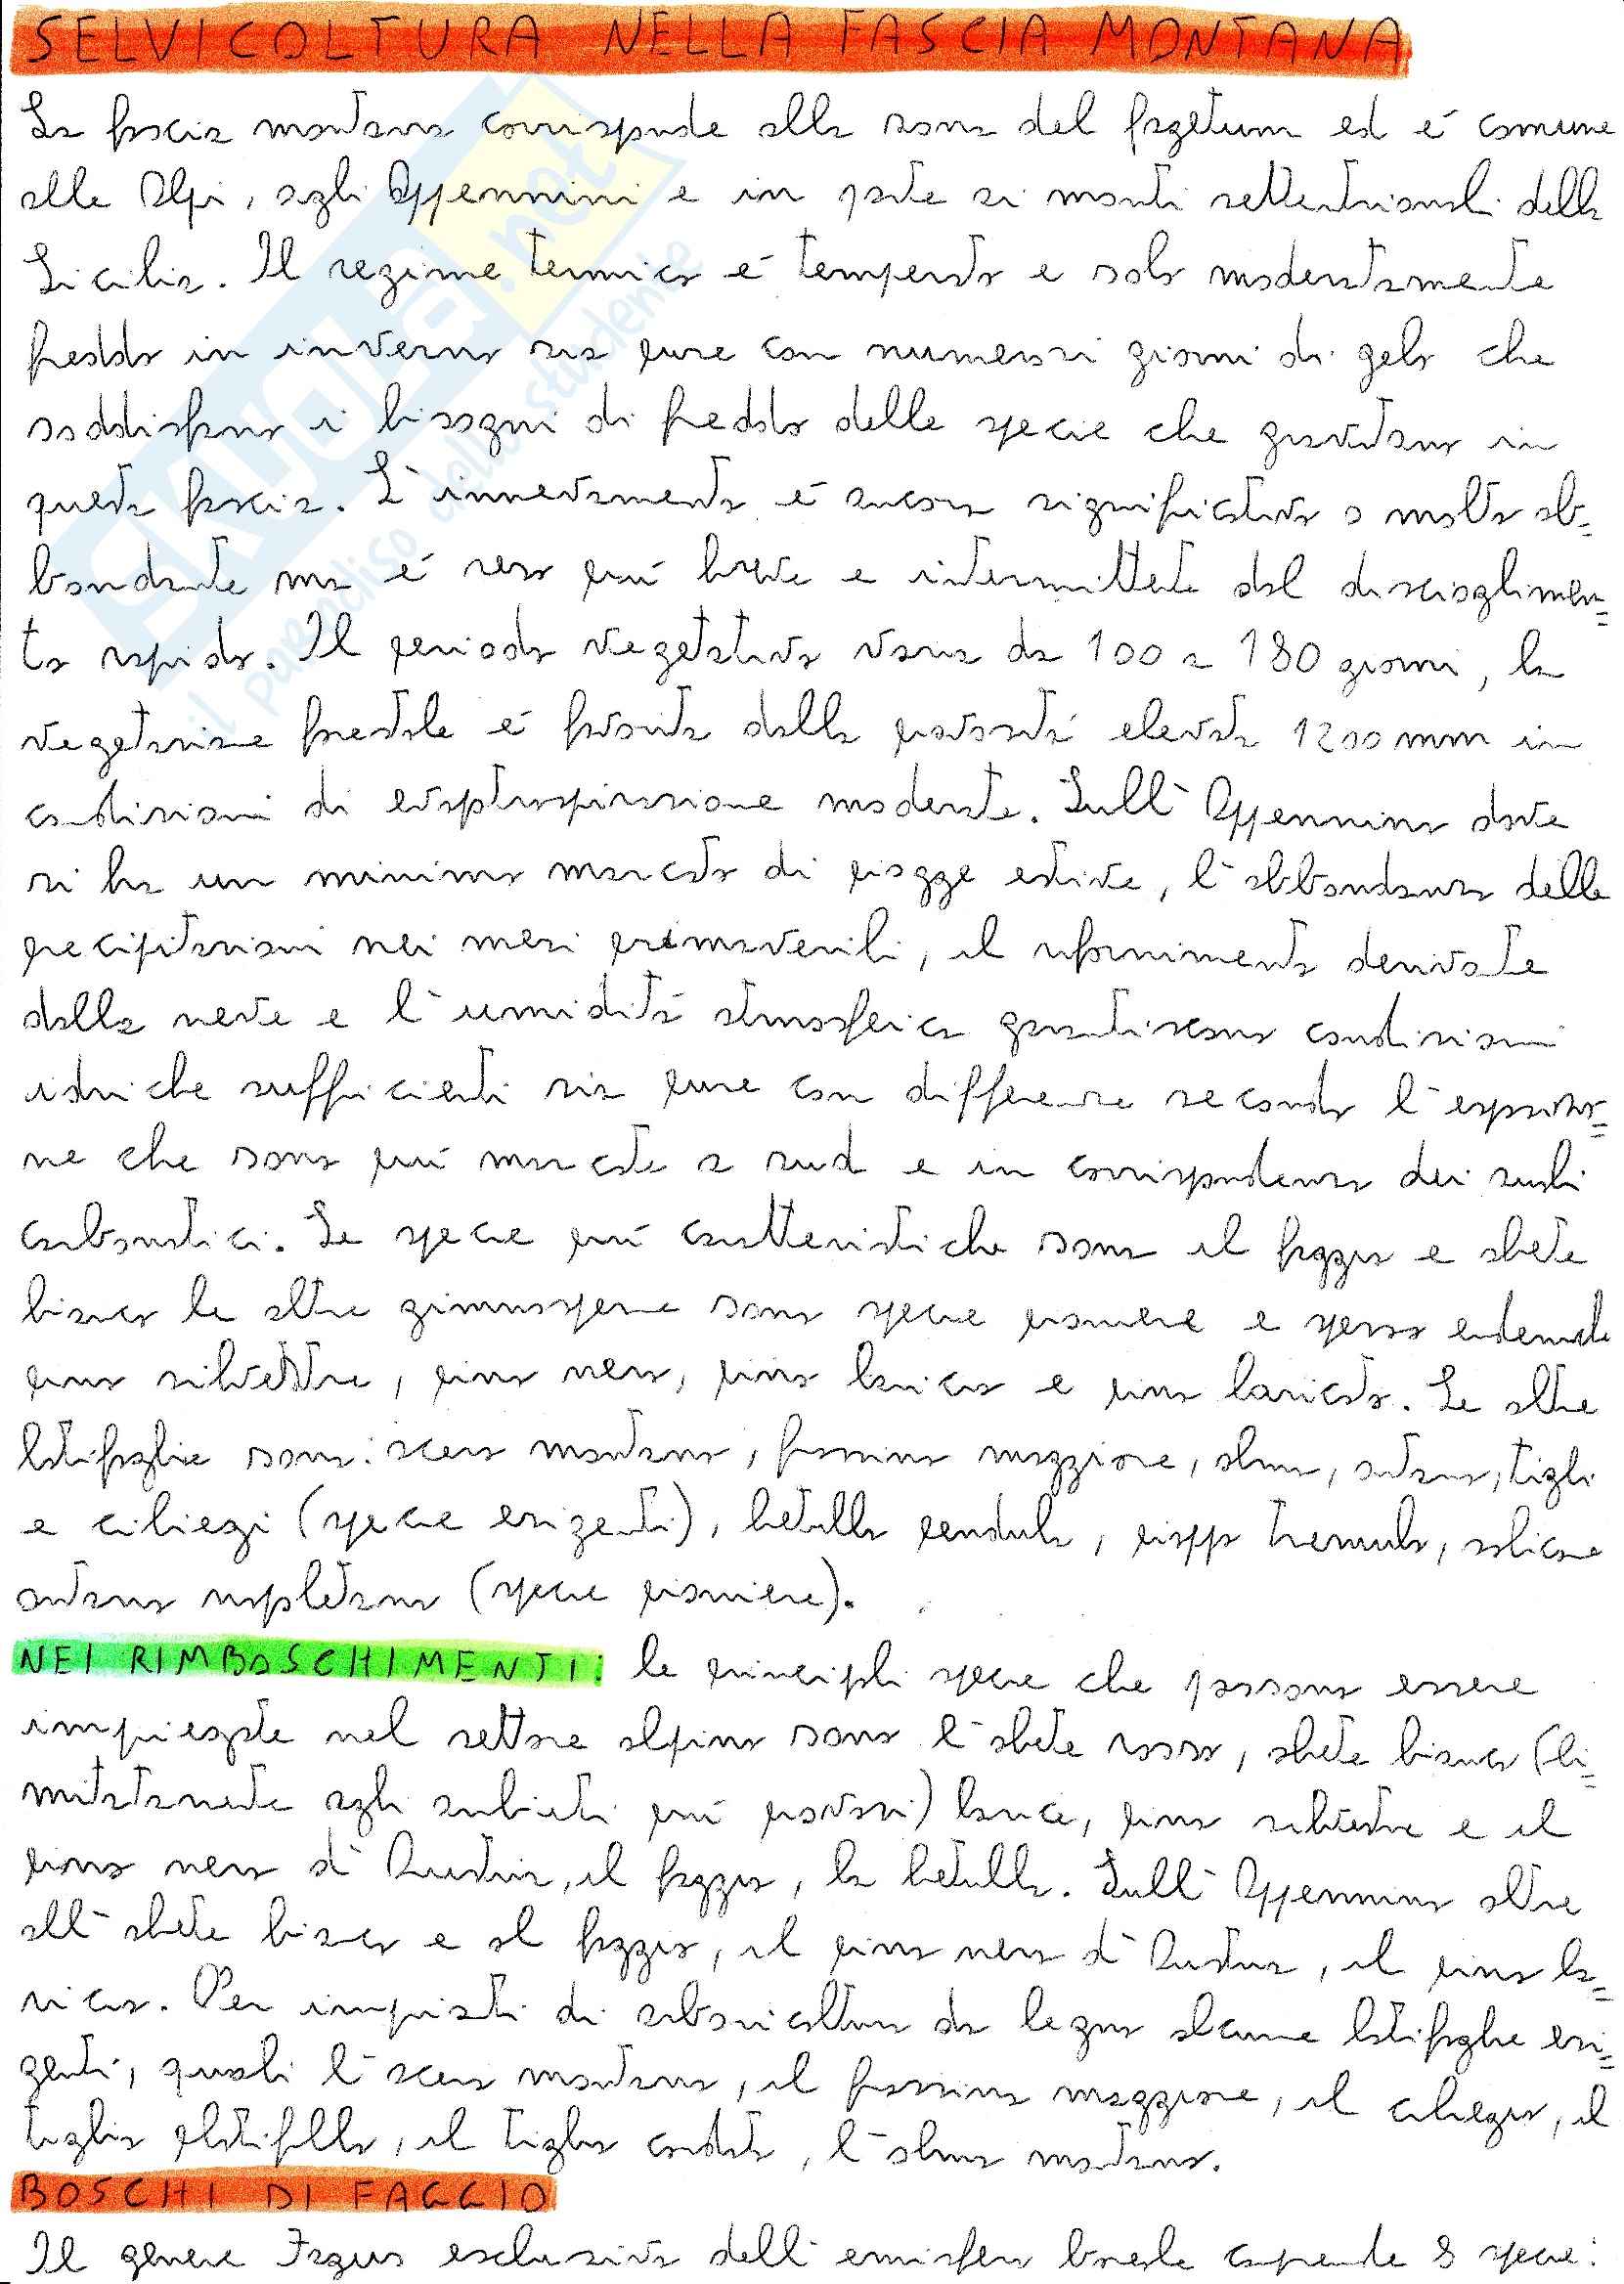 SELVICOLTURA NELLA FASCIA MONTANA
La fascia montana corrisponde alla zona del fagetum ed é comune
alle Alpi, agli Appennini e in parte ai monti settentrionali della
Sicilia. Il regime termico é temperato e solo moderatamente
freddo in inverno sia pure con numerosi giorni di gelo che
soddisfano i bisogni di freddo delle specie che gravitano in
questa fascia. L'innevamento é ancora significativo o molto ab=
bondante ma é reso piú breve e intermittete dal discioglimen=
to rapido. Il periodo vegetativo varia da 100 a 180 giorni, la
vegetazione forestale é favorita dalla piovosità elevata 1200 mm in
condizioni di evapotraspirazione moderata. Sull'Appennino dove
si ha un minimo marcato di piogge estive, l'abbondanza delle
precipitazioni nei mesi primaverili, il rifornimento derivate
dalla neve e l'umidità atmosferica garantiscono condizioni
idriche sufficienti sia pure con differenze secondo l'esposizio=
ne che sono piú marcate a sud e in corrispondenza dei suoli
carbonatici. Le specie piú caratteristiche sono il faggio e abete
bianco le altre gimnosperme sono specie pioniere e spesso endemiche
pino silvestre, pino nero, pino laricio e pino loricato. Le altre
latifoglie sono: acero montano, frassino maggiore, olmo, ontano, tigli
e ciliegi (specie esigenti), betulla pendula, pioppo tremulo, salicone
ontano napoletano (specie pioniere).
NEI RIMBOSCHIMENTI: le principali specie che possono essere
impiegate nel settore alpino sono l'abete rosso, abete bianco (li=
mitatamente agli ambienti piú piovosi) larice, pino silvestre e il
pino nero d'Austria, il faggio, la betulla. Sull'Appennino oltre
all'abete bianco e al faggio, il pino nero d'Austria, il pino la=
ricio. Per impianti di arboricoltura da legno alcune latifoglie esi=
genti, quali l'acero montano, il frassino maggiore, il ciliegio, il
tiglio platifillo, il tiglio cordato, l'olmo montano.
BOSCHI DI FAGGIO
Il genere Fagus esclusivo dell'emisfero boreale comprende 8 specie: